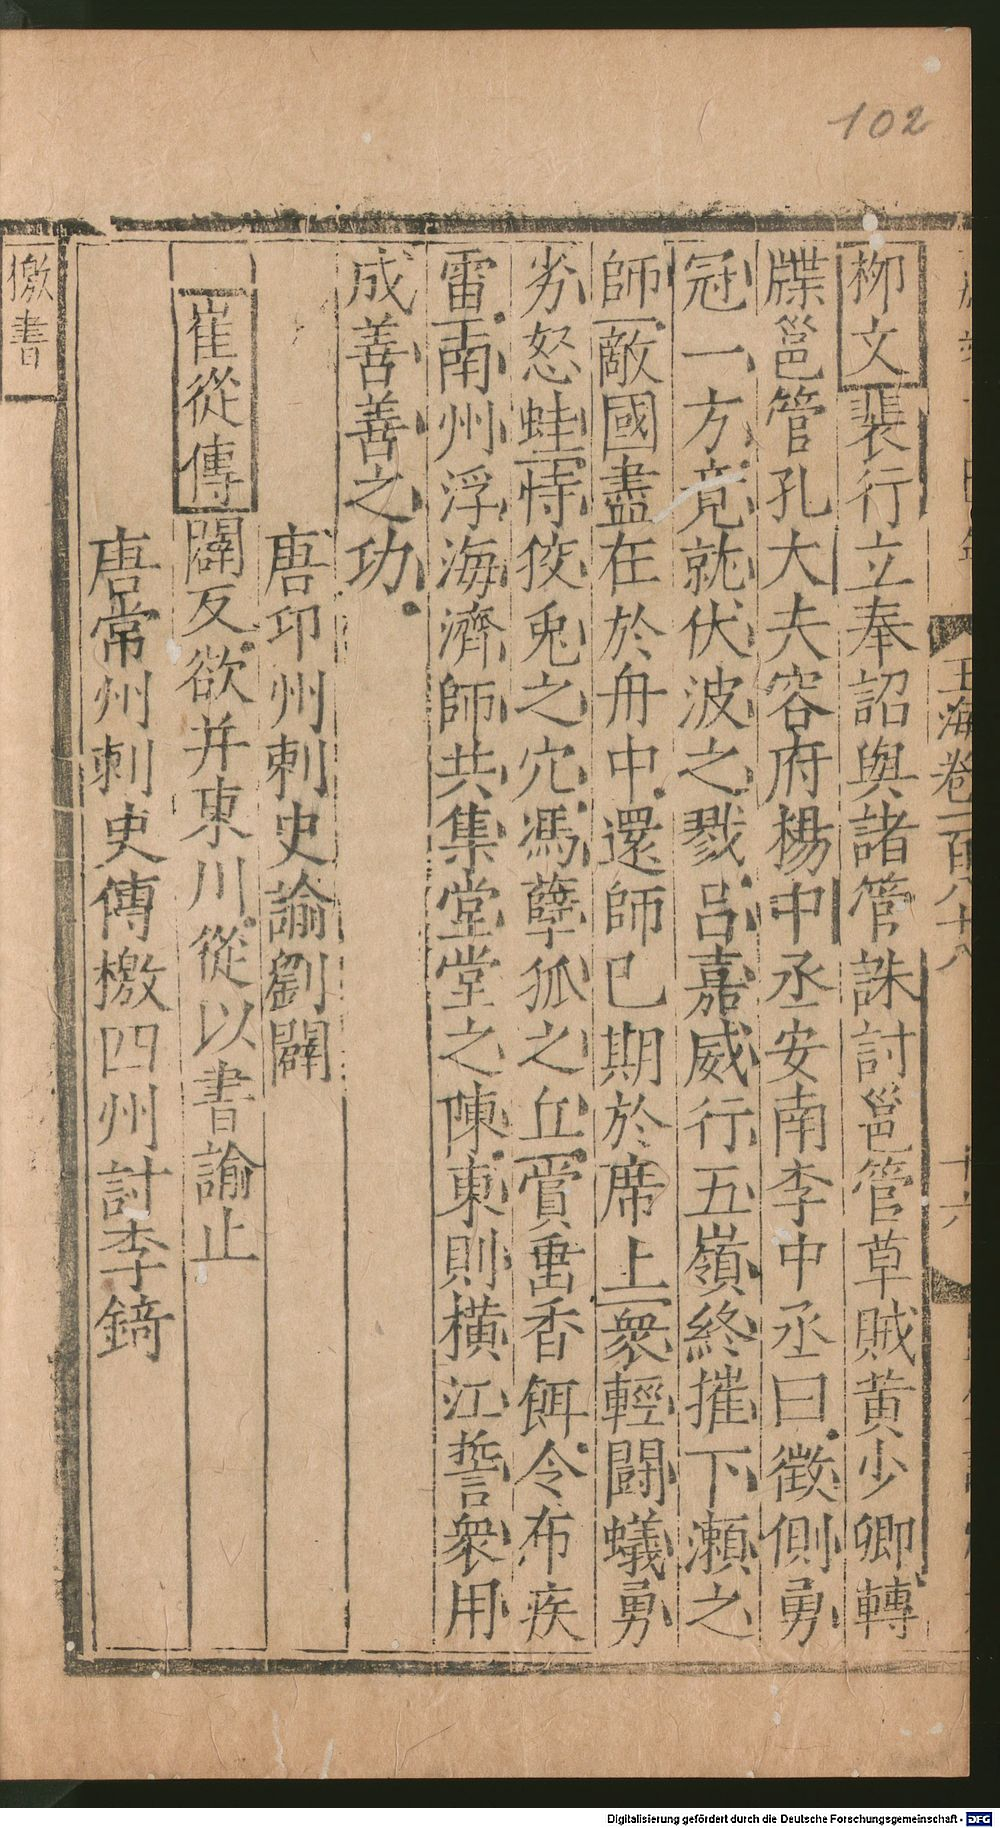 102
玉海卷一百八十八
十六
柳文裴行立奉詔與諸管誅討邕管草賊黃少卿轉
牒邕管孔大夫容府楊中丞安南李中丞曰徵側勇
冠一方竟就伏波之戮呂嘉威行五嶺終摧下瀨之
師敵國盡在於舟中還師已期於席上衆輕鬪蟻勇
劣怒蛙恃狡兎之穴馮孽狐之丘賞畨香餌令布疾
雷南州浮海濟師共集堂堂之陳東則橫江誓衆用
成善善之功
唐卭州刺史諭劉闢
崔從傳闢反欲并東川從以書諭止
唐常州刺史傳檄四州討李錡
檄書
Digitalisierung gefördert durch die Deutsche Forschungsgemeinschaft - DFG